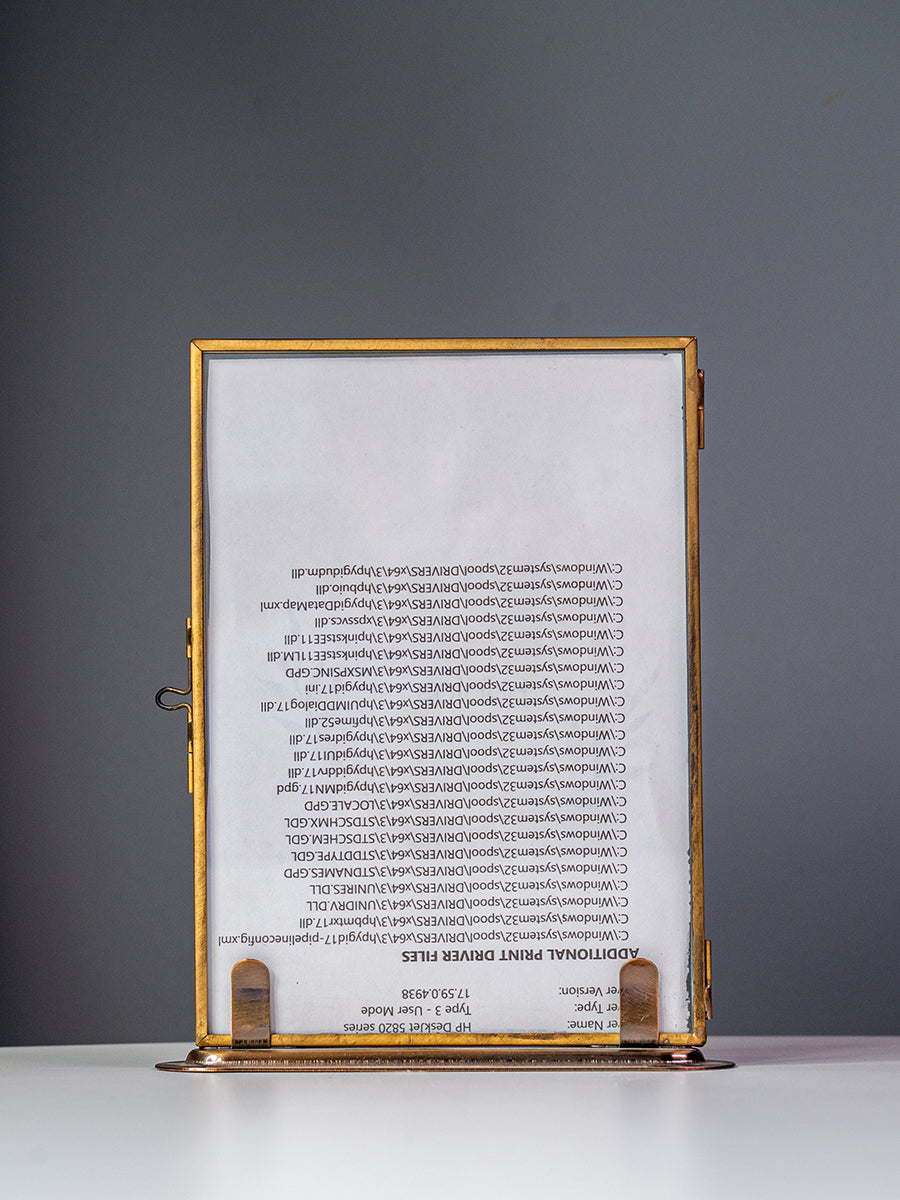 ver Name: HP DeskJet 5820 series
ver Type: Type 3 - User Mode
ver Version: 17.59.0.4938
ADDITIONAL PRINT DRIVER FILES
C:\Windows\system32\spool\DRIVERS\x64\3\hpygid17-pipelineconfig.xml
C:\Windows\system32\spool\DRIVERS\x64\3\hpbmtxr17.dll
C:\Windows\system32\spool\DRIVERS\x64\3\UNIDRV.DLL
C:\Windows\system32\spool\DRIVERS\x64\3\UNIRES.DLL
C:\Windows\system32\spool\DRIVERS\x64\3\STDNAMES.GPD
C:\Windows\system32\spool\DRIVERS\x64\3\STDDTYPE.GDL
C:\Windows\system32\spool\DRIVERS\x64\3\STDSCHEM.GDL
C:\Windows\system32\spool\DRIVERS\x64\3\STDSCHMX.GDL
C:\Windows\system32\spool\DRIVERS\x64\3\LOCALE.GPD
C:\Windows\system32\spool\DRIVERS\x64\3\hpygidMN17.gpd
C:\Windows\system32\spool\DRIVERS\x64\3\hpygiddrv17.dll
C:\Windows\system32\spool\DRIVERS\x64\3\hpygidUI17.dll
C:\Windows\system32\spool\DRIVERS\x64\3\hpygidres17.dll
C:\Windows\system32\spool\DRIVERS\x64\3\hpfime52.dll
C:\Windows\system32\spool\DRIVERS\x64\3\hpUIMDDialog17.dll
C:\Windows\system32\spool\DRIVERS\x64\3\hpygid17.ini
C:\Windows\system32\spool\DRIVERS\x64\3\MSXPSINC.GPD
C:\Windows\system32\spool\DRIVERS\x64\3\hpinkstsEE11LM.dll
C:\Windows\system32\spool\DRIVERS\x64\3\hpinkstsEE11.dll
C:\Windows\system32\spool\DRIVERS\x64\3\xpssvcs.dll
C:\Windows\system32\spool\DRIVERS\x64\3\hpygidDataMap.xml
C:\Windows\system32\spool\DRIVERS\x64\3\hpbuio.dll
C:\Windows\system32\spool\DRIVERS\x64\3\hpygidudm.dll